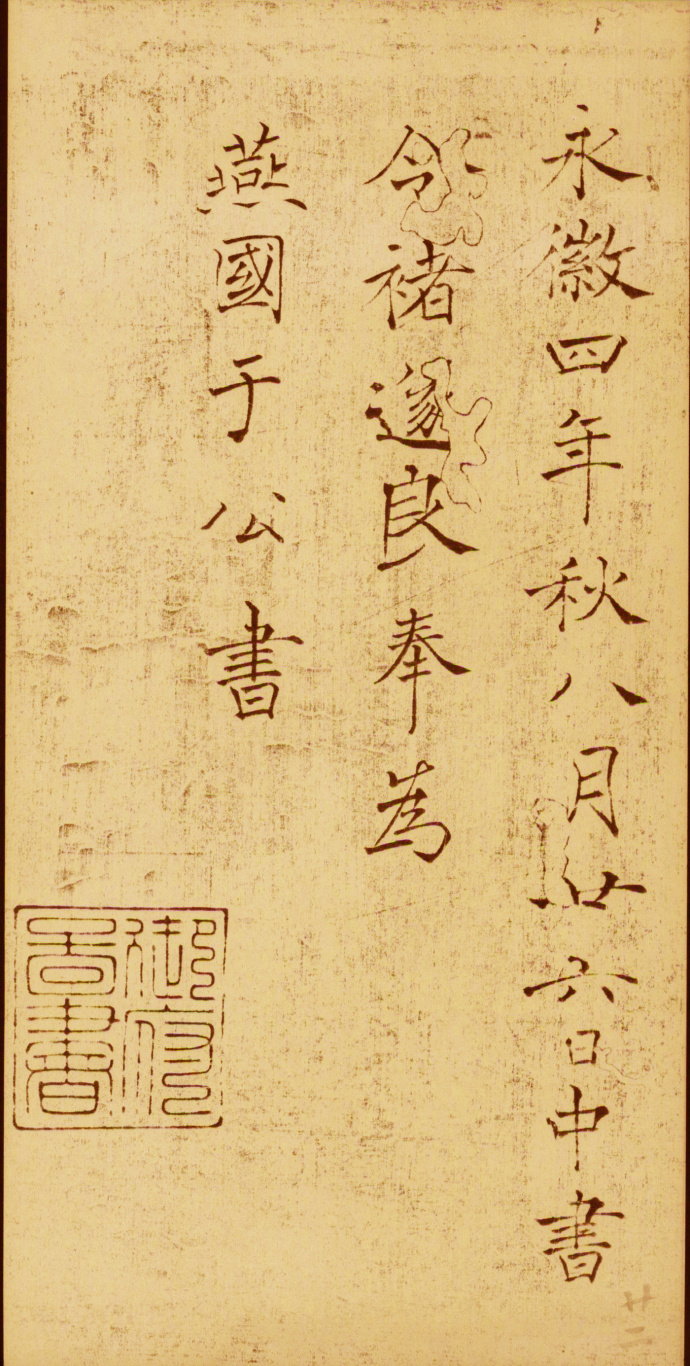 永徽四年秋八月廿六日中書
令褚遂良奉為
燕國于公書
御府
圖書
廿二